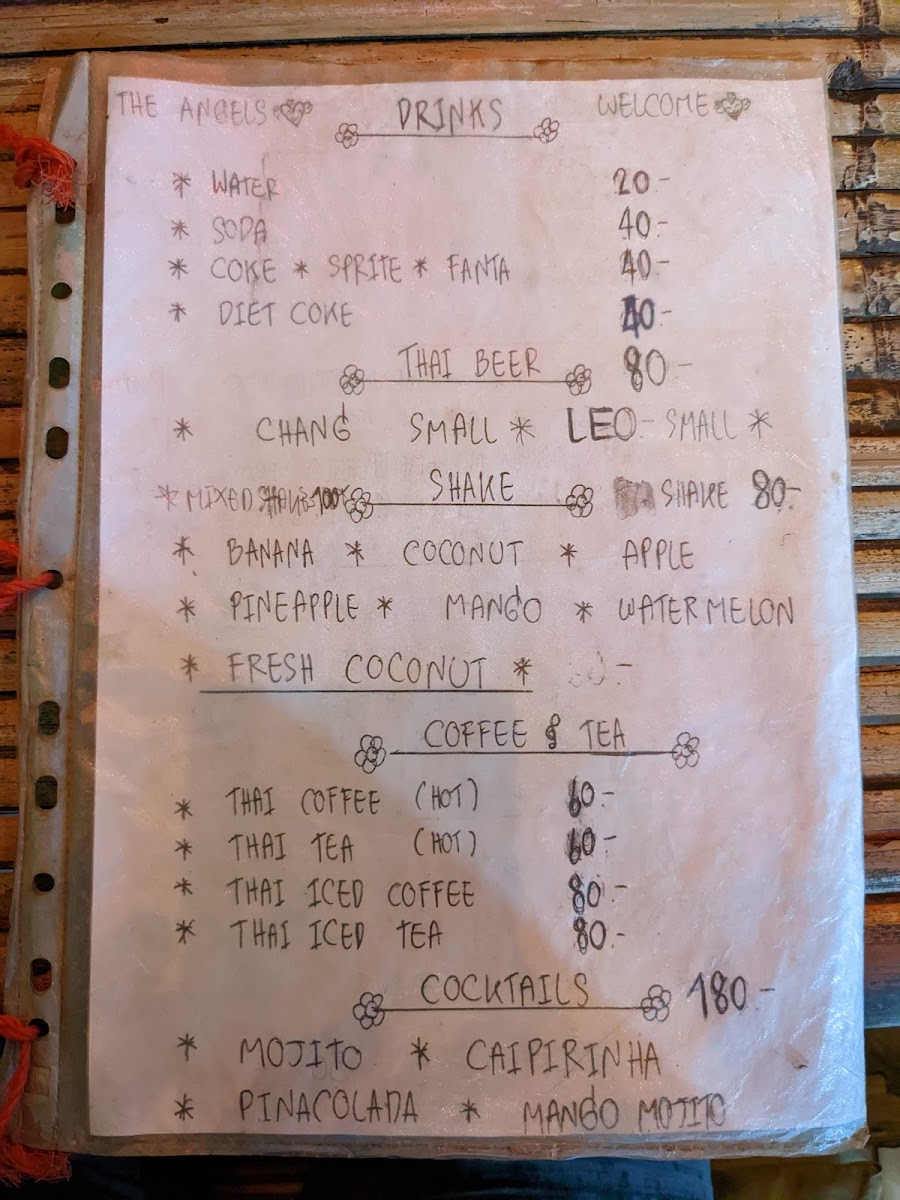 THE ANGELS DRINKS WELCOME
* WATER 20.-
* SODA 40.-
* COKE * SPRITE * FANTA 40.-
* DIET COKE 40.-
THAI BEER 80-
* CHANG SMALL * LEO- SMALL *
* MIXED SHAKE 100 SHAKE SHAKE 80.-
* BANANA * COCONUT * APPLE
* PINEAPPLE * MANGO * WATERMELON
* FRESH COCONUT *
COFFEE & TEA
* THAI COFFEE (HOT) 60.-
* THAI TEA (HOT) 60.-
* THAI ICED COFFEE 80.-
* THAI ICED TEA 80.-
COCKTAILS 180.-
* MOJITO * CAIPIRINHA
* PINACOLADA * MANGO MOJITO